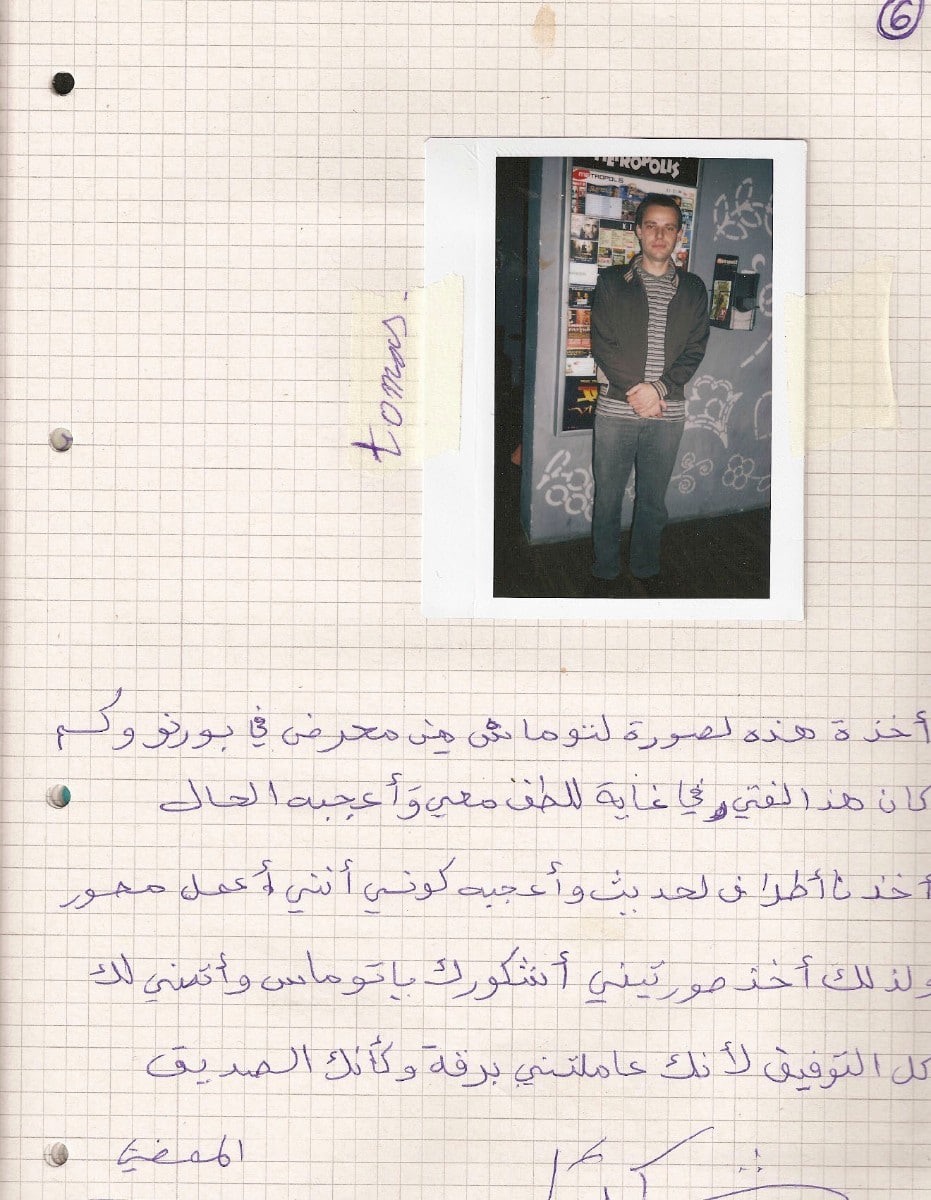 6
METROPOLIS
METROPOLIS
tomas.
أخذة هذه لصورة لتوماس من معرض في بورنو وكسم
كان هذ الفتي في غاية للطف معي وأعجبه الحال
أخذنا أطراف لحديث وأعجبه كونسي أنني أعمل مصور
ولذلك أخذ صورتيني أشكورك ياتوماس وأتمني لك
كل التوفيق لأنك عاملتني برفة وكأنك الصديق
الممضي